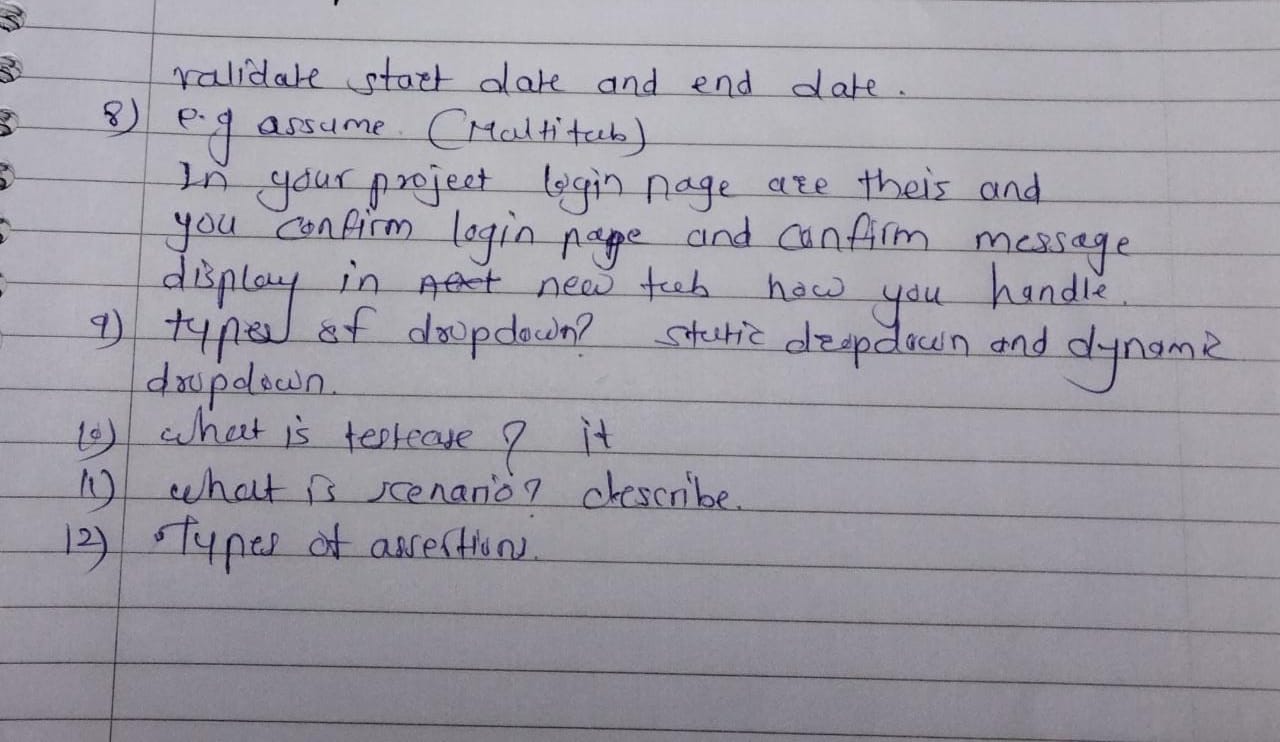 validate start date and end date.
8) e.g assume. (Multitab)
In your project login page are their and
you confirm login page and confirm message
display in next new tab how you handle.
9) types of dropdown? static dropdown and dynamic
dropdown.
10) what is testcase ? it
11) what is scenario? describe.
12) Types of assertions.